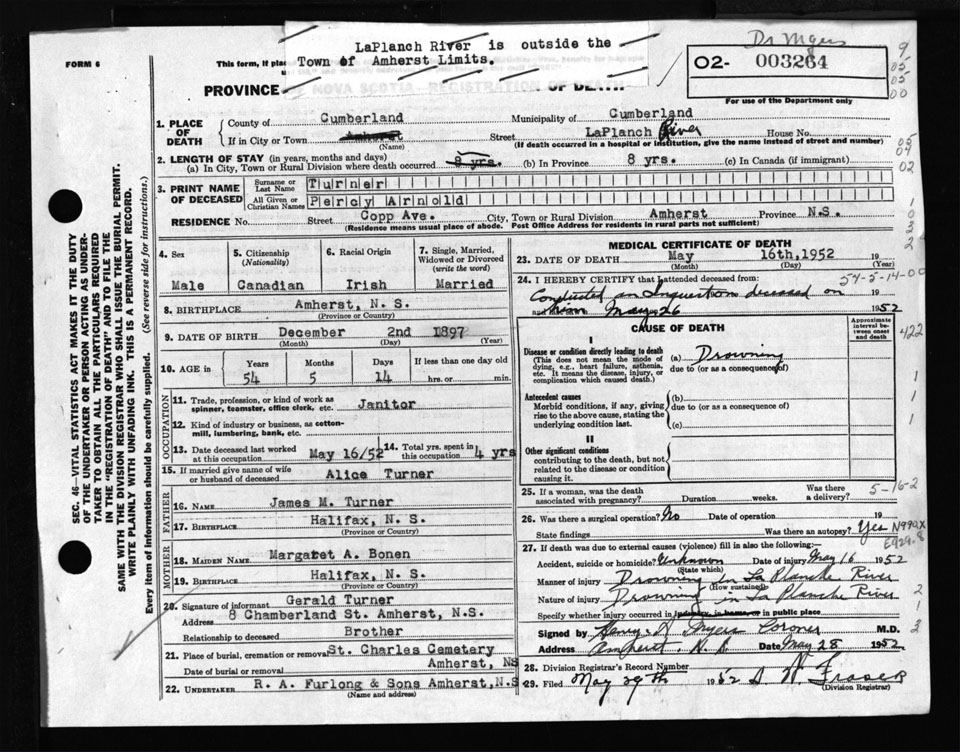 Dr Myers
LaPlanch River is outside the
Town of Amherst Limits.
FORM 6
This form, if plac
O2- 003264
For use of the Department only
9
05
05
00
PROVINCE OF NOVA SCOTIA—REGISTRATION OF DEATH
SEC. 46—VITAL STATISTICS ACT MAKES IT THE DUTY
OF THE UNDERTAKER OR PERSON ACTING AS UNDER-
TAKER TO OBTAIN ALL THE PARTICULARS REQUIRED
IN THE "REGISTRATION OF DEATH" AND TO FILE THE
SAME WITH THE DIVISION REGISTRAR WHO SHALL ISSUE THE BURIAL PERMIT.
WRITE PLAINLY WITH UNFADING INK. THIS IS A PERMANENT RECORD.
Every item of information should be carefully supplied. (See reverse side for instructions.)
1. PLACE OF DEATH
County of Cumberland Municipality of Cumberland
If in City or Town Amherst Street LaPlanch River House No.
(Name) (If death occurred in a hospital or institution, give the name instead of street and number)
2. LENGTH OF STAY (in years, months and days)
(a) In City, Town or Rural Division where death occurred 8 yrs. (b) In Province 8 yrs. (c) In Canada (if immigrant)
3. PRINT NAME OF DECEASED
Surname or Last Name Turner
All Given or Christian Names Percy Arnold
RESIDENCE No. Street Copp Ave. City, Town or Rural Division Amherst Province N.S.
(Residence means usual place of abode. Post Office Address for residents in rural parts not sufficient)
4. Sex
Male
5. Citizenship (Nationality)
Canadian
6. Racial Origin
Irish
7. Single, Married, Widowed or Divorced (write the word)
Married
8. BIRTHPLACE Amherst, N. S.
(Province or Country)
9. DATE OF BIRTH December 2nd 1897
(Month) (Day) (Year)
10. AGE in Years Months Days If less than one day old
54 5 14 hrs. or min.
OCCUPATION
11. Trade, profession, or kind of work as spinner, teamster, office clerk, etc. Janitor
12. Kind of industry or business, as cotton-mill, lumbering, bank, etc.
13. Date deceased last worked at this occupation May 16/52
14. Total yrs. spent in this occupation 4 yrs
15. If married give name of wife or husband of deceased Alice Turner
FATHER
16. NAME James M. Turner
17. BIRTHPLACE Halifax, N. S.
(Province or Country)
MOTHER
18. MAIDEN NAME Margaret A. Bonen
19. BIRTHPLACE Halifax, N. S.
(Province or Country)
20. Signature of informant Gerald Turner
Address 8 Chamberland St. Amherst, N.S.
Relationship to deceased Brother
21. Place of burial, cremation or removal St. Charles Cemetery
Date of burial or removal Amherst, NS
22. UNDERTAKER R. A. Furlong & Sons Amherst, N.S
(Name and address)
MEDICAL CERTIFICATE OF DEATH
23. DATE OF DEATH May 16th, 1952 19
(Month) (Day) (Year)
24. I HEREBY CERTIFY that I attended deceased from:
54-5-14-00
Conducted an Inquest on deceased on 19
May 26 1952
CAUSE OF DEATH
Approximate interval between onset and death
I
Disease or condition directly leading to death
(This does not mean the mode of dying, e.g., heart failure, asthenia, etc. It means the disease, injury, or complication which caused death.)
(a) Drowning
due to (or as a consequence of)
Antecedent causes
Morbid conditions, if any, giving rise to the above cause, stating the underlying condition last.
(b)
due to (or as a consequence of)
(c)
II
Other significant conditions
contributing to the death, but not related to the disease or condition causing it.
422
1
1
1
25. If a woman, was the death associated with pregnancy? Duration weeks. Was there a delivery? 5-16-2
26. Was there a surgical operation? No Date of operation 19
State findings Was there an autopsy? Yes N990X
E929.8
27. If death was due to external causes (violence) fill in also the following:—
Accident, suicide or homicide? Unknown Date of injury May 16 1952
(State which)
Manner of injury Drowning in La Planche River
(How sustained)
Nature of injury Drowning in La Planche River
Specify whether injury occurred in industry, in home, or in public place
Signed by Henry L Myers Coroner M.D.
Address Amherst. N.S. Date May 28 1952
28. Division Registrar's Record Number
29. Filed May 29th 1952 Fraser
(Division Registrar)